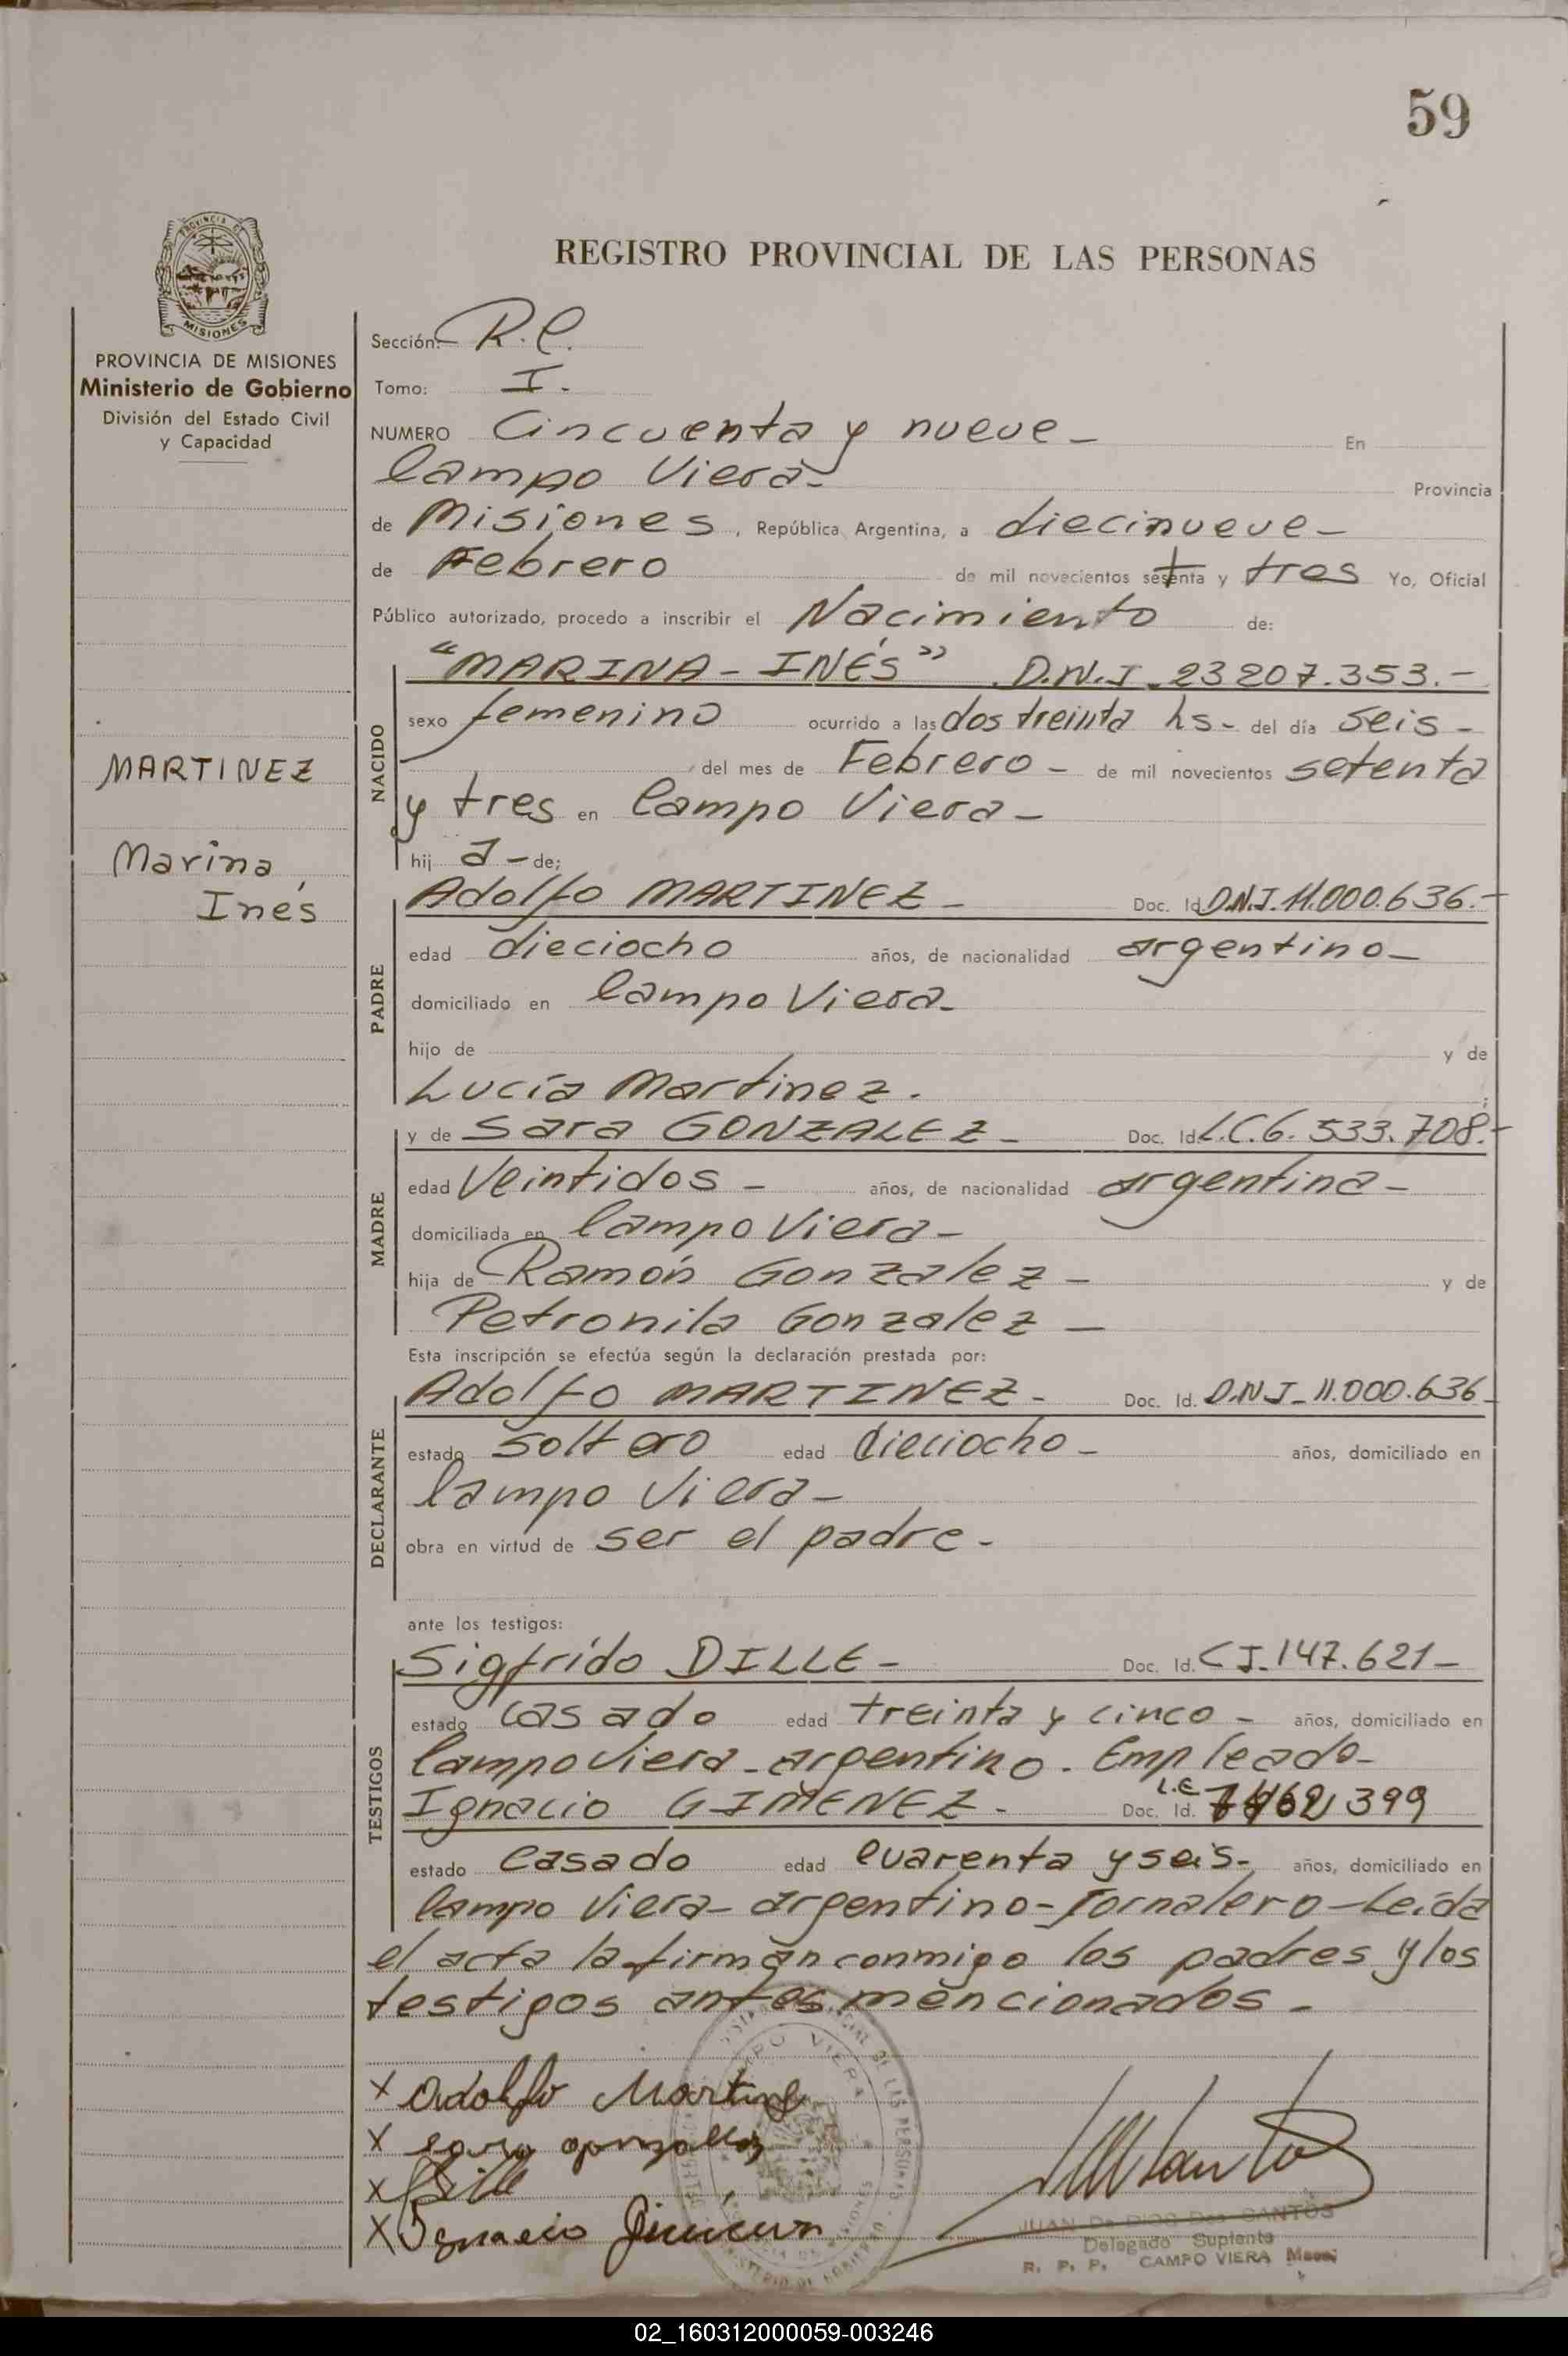 59
PROVINCIA DE
MISIONES
PROVINCIA DE MISIONES
Ministerio de Gobierno
División del Estado Civil
y Capacidad
MARTINEZ
Marina
Inés
REGISTRO PROVINCIAL DE LAS PERSONAS
Sección: R.C.
Tomo: I.-
NUMERO Cincuenta y nueve - En
Campo Viera- Provincia
de Misiones, República Argentina, a diecinueve-
de Febrero de mil novecientos setenta y tres Yo, Oficial
Público autorizado, procedo a inscribir el Nacimiento de:
NACIDO
"MARINA - INÉS" D.N.I. 23207.353.-
sexo femenino ocurrido a las dos treinta hs- del día seis -
del mes de Febrero - de mil novecientos setenta
y tres en Campo Viera -
hij a - de:
PADRE
Adolfo MARTINEZ - Doc. Id. D.N.I. 11.000.636.-
edad dieciocho años, de nacionalidad argentino-
domiciliado en Campo Viera-
hijo de y de
Lucía Martinez.
MADRE
y de Sara GONZALEZ - Doc. Id. L.C. 6.533.708.-
edad Veintidos - años, de nacionalidad argentina -
domiciliada en Campo Viera -
hija de Ramón Gonzalez - y de
Petronila Gonzalez -
Esta inscripción se efectúa según la declaración prestada por:
DECLARANTE
Adolfo MARTINEZ - Doc. Id. D.N.I - 11.000.636-
estado soltero edad dieciocho - años, domiciliado en
Campo Viera -
obra en virtud de ser el padre -
ante los testigos:
TESTIGOS
Sigfrido DILLE - Doc. Id. C I. 147.621 -
estado casado edad treinta y cinco - años, domiciliado en
Campo Viera - argentino. Empleado-
Ignacio GIMENEZ - Doc. Id. L.E 399
estado Casado edad Cuarenta y seis- años, domiciliado en
Campo Viera - argentino - Jornalero - Leída
el acta la firman conmigo los padres y los
testigos antes mencionados -
X Adolfo Martinez
X sara gonzalez
X Dille
X Ignacio Jimenez
CAMPO VIERA
JUAN De DIOS Dos SANTOS
Delegado Suplente
R. P. P. CAMPO VIERA
02_160312000059-003246